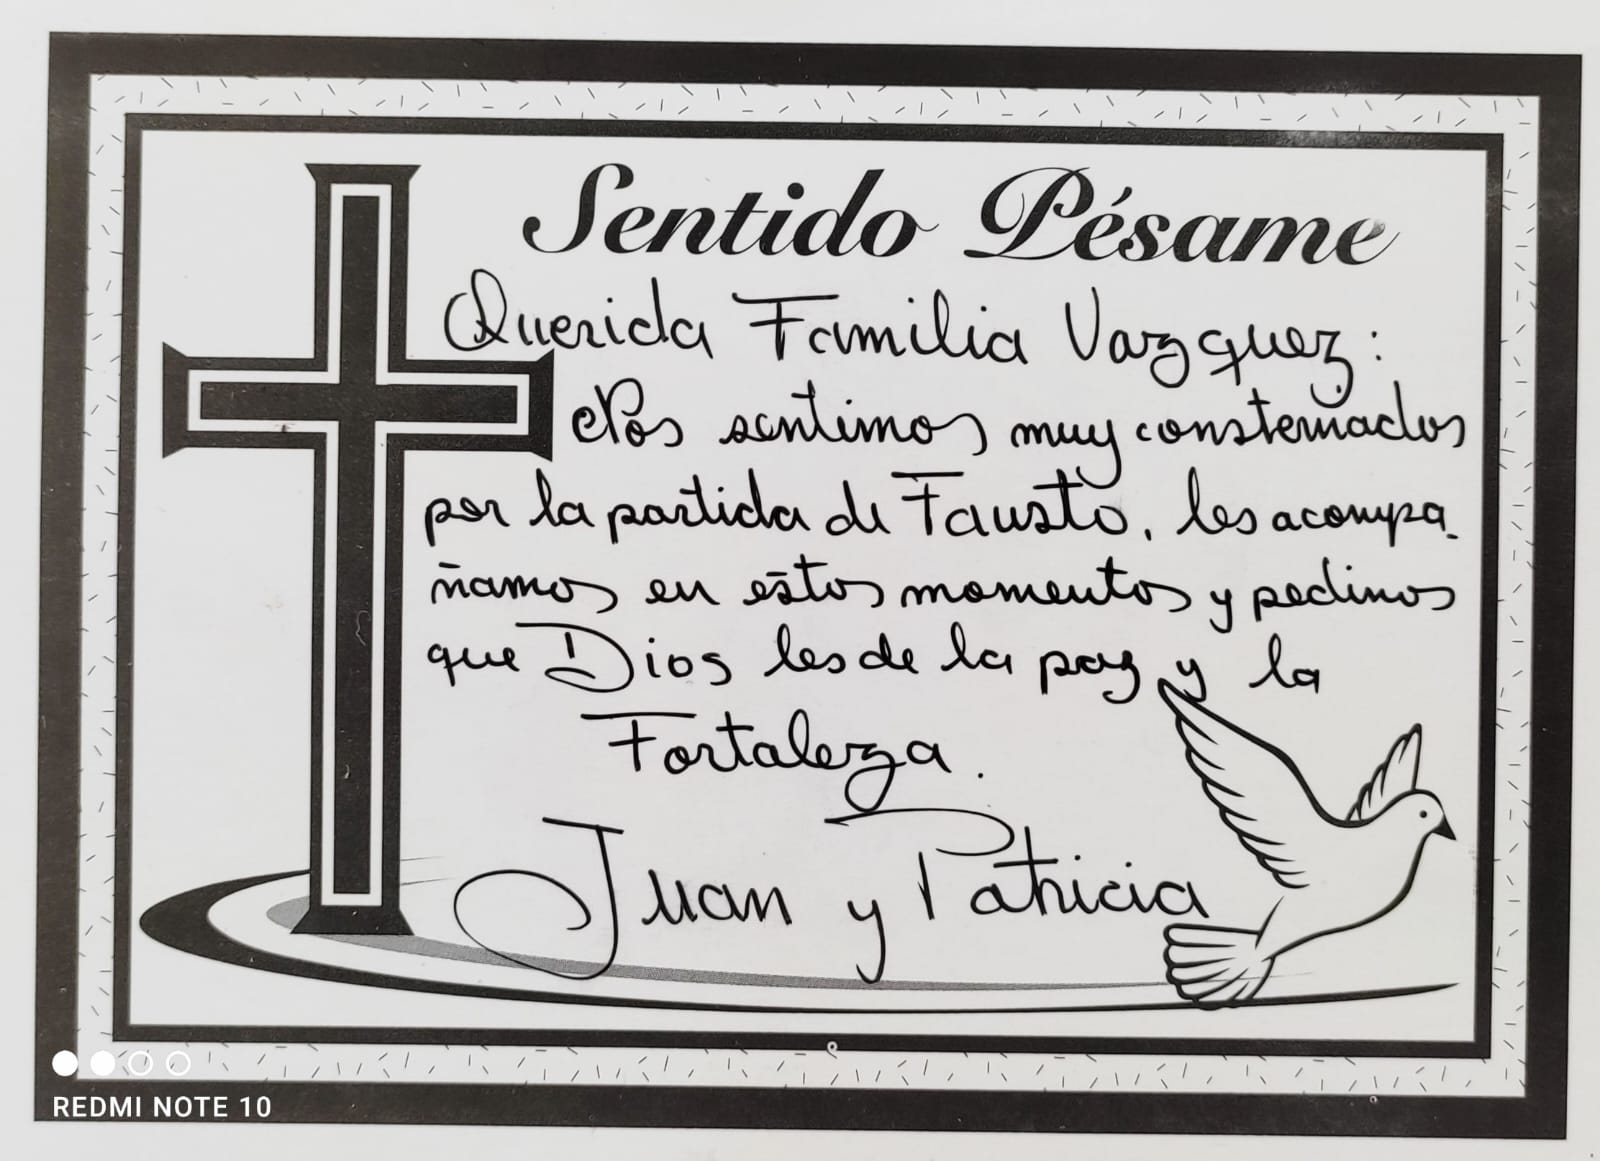 Sentido Pésame
Querida Familia Vazquez:
Nos sentimos muy consternados
por la partida de Fausto, les acompa-
ñamos en estos momentos y pedimos
que Dios les de la paz y la
Fortaleza.
Juan y Patricia
REDMI NOTE 10